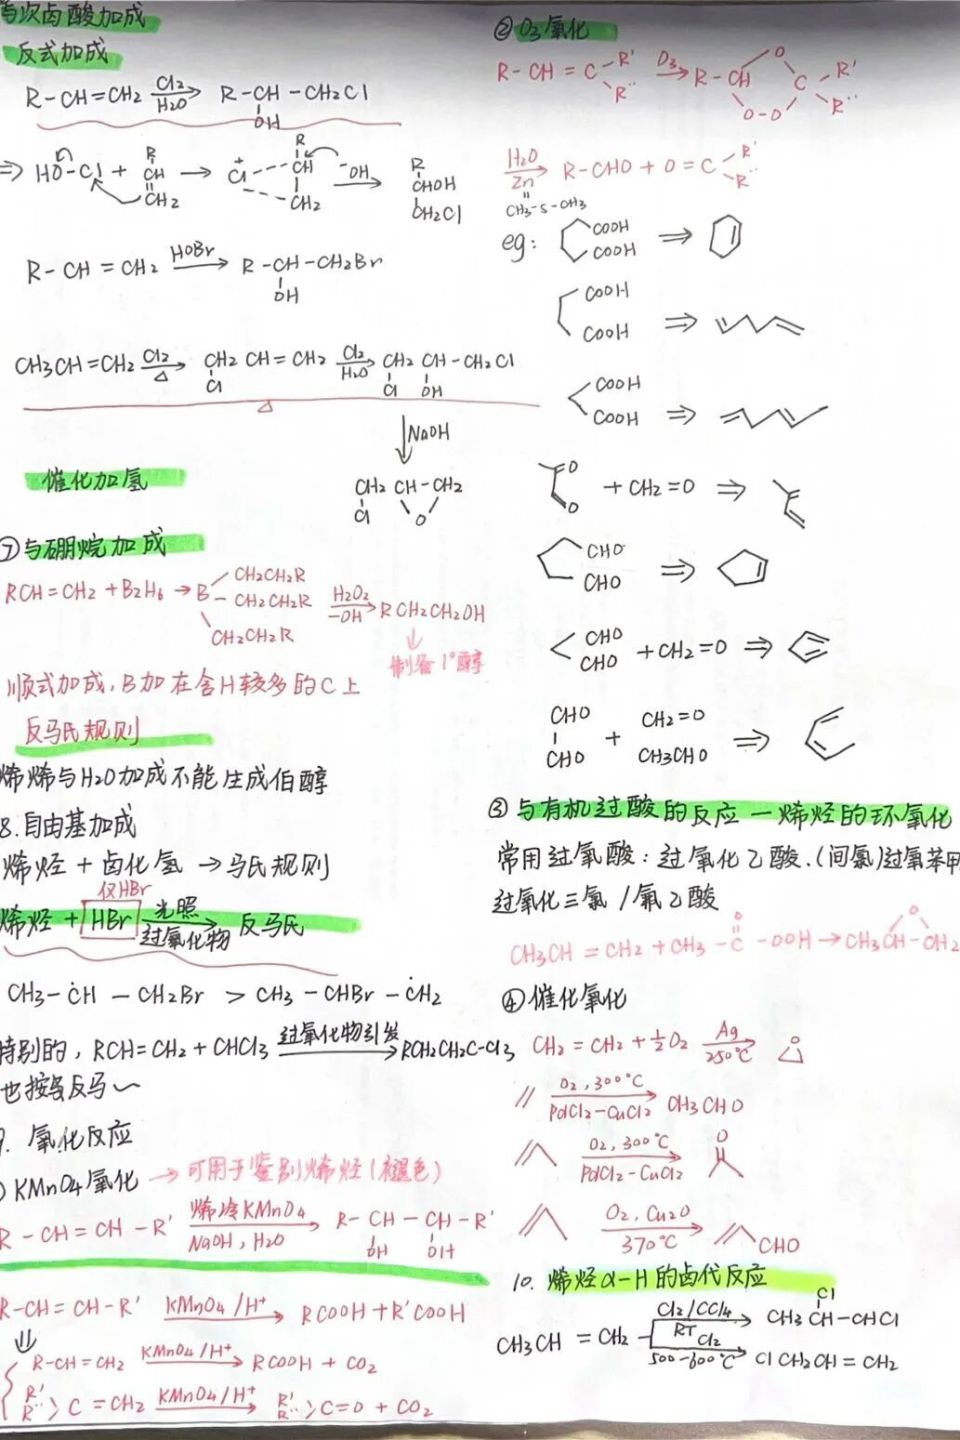 与次卤酸加成
反式加成
R-CH=CH2 Cl2/H2O → R-CH-CH2Cl
OH
⇒ HO-Cl + R CH=CH2 → Cl+ R CH CH2 -OH → R CHOH CH2Cl
R-CH=CH2 HOBr → R-CH-CH2Br
OH
CH3CH=CH2 Cl2/△ → CH2CH=CH2 Cl2/H2O → CH2CH-CH2Cl
Cl Cl OH
△
↓NaOH
CH2CH-CH2
Cl O
催化加氢
⑦与硼烷加成
RCH=CH2+B2H6→B CH2CH2R CH2CH2R CH2CH2R H2O2/-OH → RCH2CH2OH
↓
制备1°醇
顺式加成,B加在含H较多的C上
反马氏规则
烯烯与H2O加成不能生成伯醇
8.自由基加成
烯烃+卤化氢→马氏规则
仅HBr
烯烃+HBr 光照/过氧化物 → 反马氏
CH3-ĊH-CH2Br > CH3-CHBr-ĊH2
特别的,RCH=CH2+CHCl3 过氧化物引发 → RCH2CH2C-Cl3
也按反马~
9.氧化反应
KMnO4氧化→可用于鉴别烯烃(褪色)
R-CH=CH-R' 烯冷KMnO4/NaOH,H2O → R-CH-CH-R'
OH OH
R-CH=CH-R' KMnO4/H+ → RCOOH+R'COOH
⇓
R-CH=CH2 KMnO4/H+ → RCOOH + CO2
R' R'' >C=CH2 KMnO4/H+ → R' R'' >C=O + CO2
②O3氧化
R-CH=C-R' R'' O3 → R-CH O O-O C R' R''
H2O/Zn → R-CHO+O=C R' R''
CH3-S-CH3
eg: COOH COOH ⇒
COOH COOH ⇒
COOH COOH ⇒
O O + CH2=O ⇒
CHO CHO ⇒
CHO CHO +CH2=O ⇒
CHO CHO + CH2=O CH3CHO ⇒
③与有机过酸的反应—烯烃的环氧化
常用过氧酸:过氧化乙酸.(间氯)过氧苯甲
过氧化三氯/氟乙酸
CH3CH=CH2+CH3-C-OOH→CH3CH-CH2
O O
④催化氧化
CH2=CH2+½O2 Ag/250℃ → O
O2,300℃/PdCl2-CuCl2 → CH3CHO
O2,300℃/PdCl2-CuCl2 → O
O2,Cu2O/370℃ → CHO
10.烯烃α-H的卤代反应
CH3CH=CH2 Cl2/CCl4 RT → CH3CH-CHCl
Cl
Cl2 500-600℃ → ClCH2CH=CH2